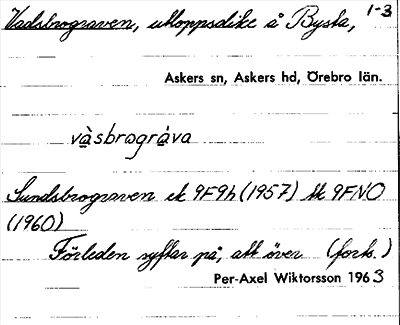 Vadsbrograven, utloppsdike å Bysta, 1-3
Askers sn, Askers hd, Örebro län.
vàsbrográva
Sundsbrograven ek 9F9h (1957) tk 9FNO
(1960)
Förleden syftar på, att över (forts.)
Per-Axel Wiktorsson 1963